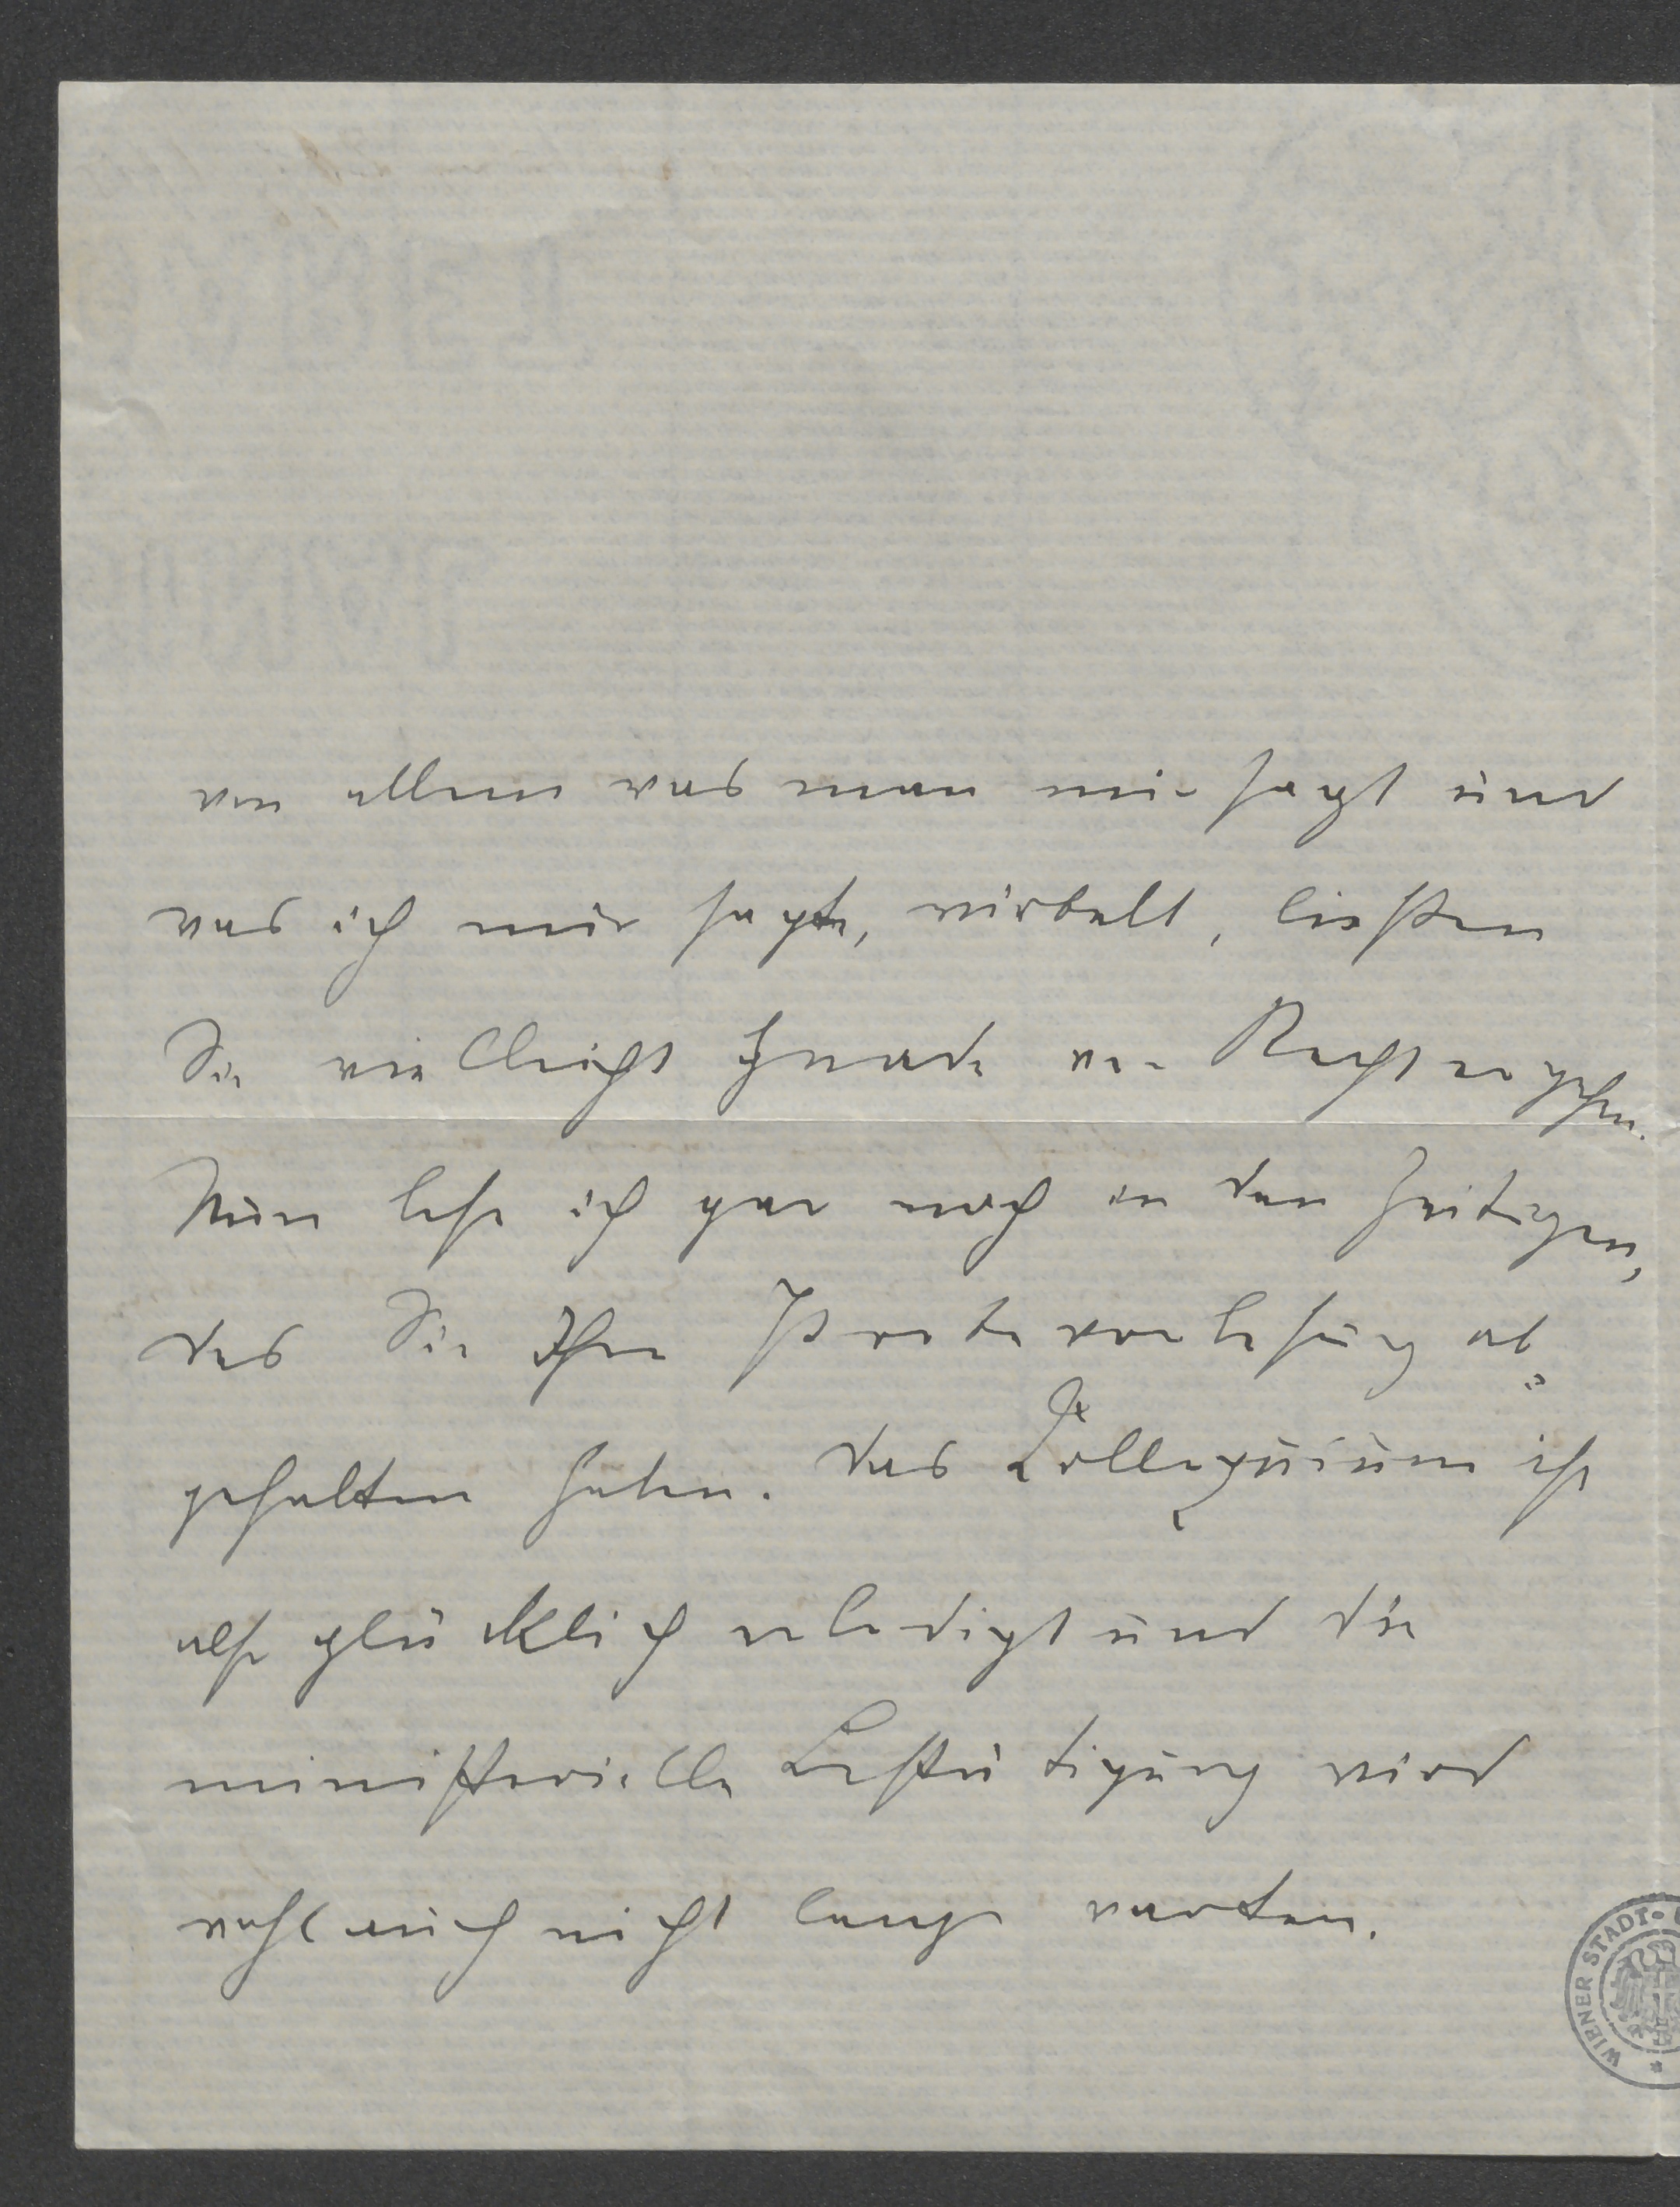 von allem was man mir sagt und
was ich mir sagte, wirbelt, ließen
Sie vielleicht Gnade vor Recht ergehen.
Nun lese ich gar noch in den Zeitungen,
das Sie Ihre Probevorlesung ab„
gehalten haben. Das Colloquium ist
also glücklich erledigt und die
ministerielle Bestätigung wird
wohl auch nicht lange warten.
WIENER STADT-